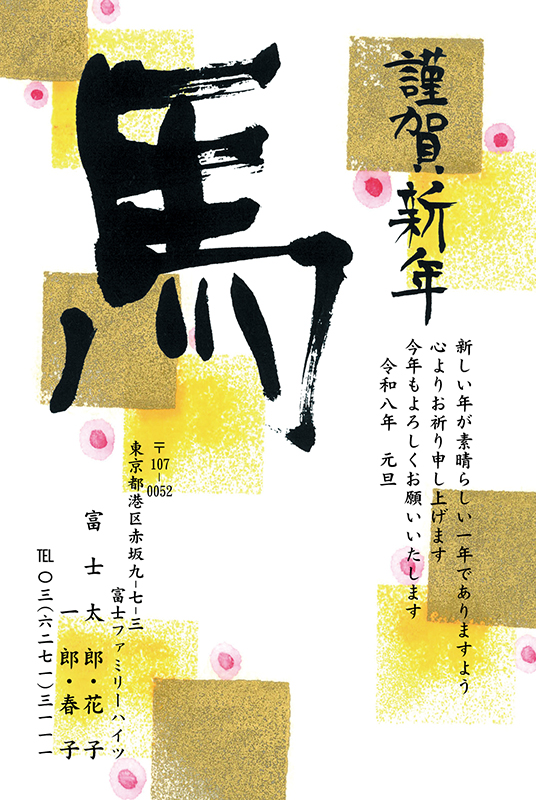 謹賀新年
馬
新しい年が素晴らしい一年でありますよう
心よりお祈り申し上げます
今年もよろしくお願いいたします
令和八年 元旦
〒107-0052
東京都港区赤坂九-七-三
富士ファミリーハイツ
富士太郎・花子
一郎・春子
TEL 〇三(六二七一)三一一一